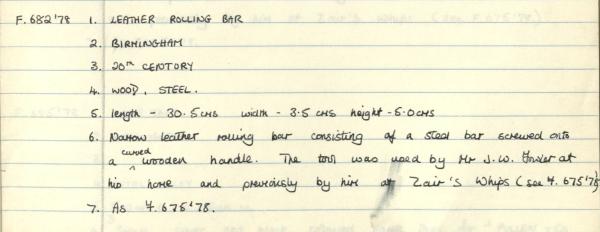 F.682'78 1. LEATHER ROLLING BAR
2. BIRMINGHAM
3. 20TH CENTORY
4. WOOD, STEEL.
5. length - 30.5cms width - 3.5 cms height - 5.0cms
6. Narrow leather rolling bar consisting of a steel bar screwed onto
a curved wooden handle. The tool was used by Mr J.W. at
his home and previously by him at Zair's Whips (see F.675'78)
7. As F.675'78.